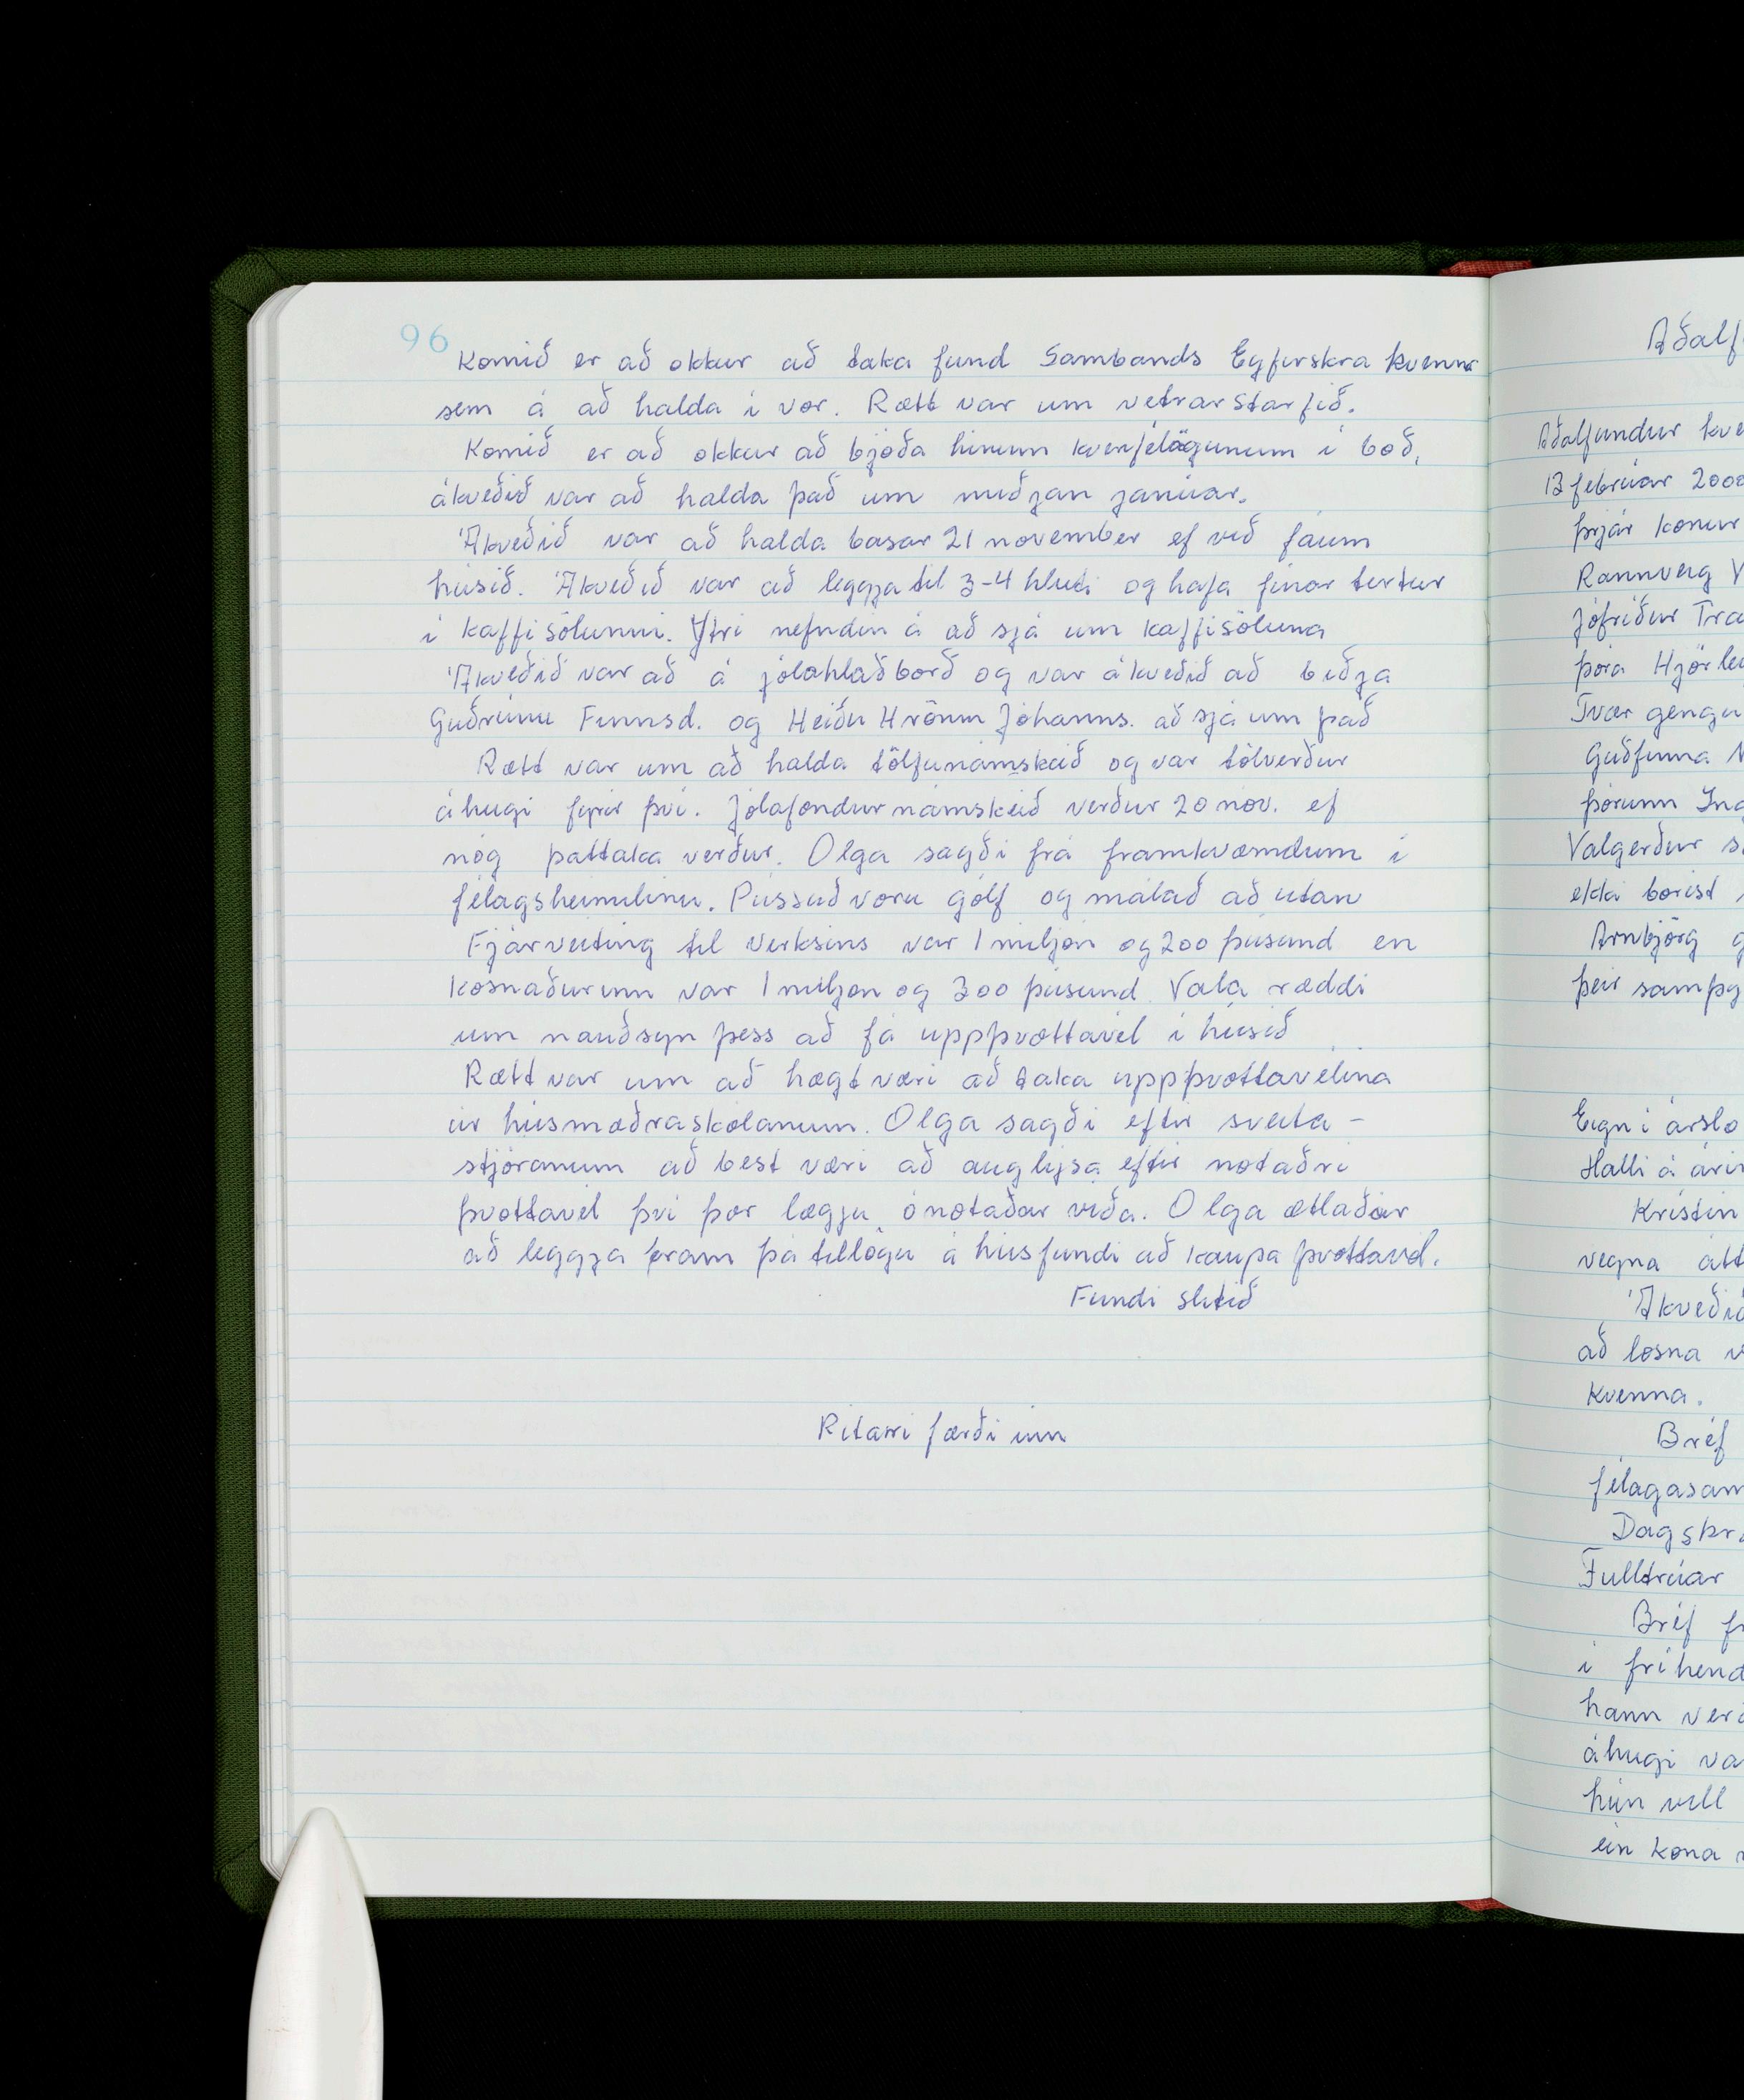 96
Komið er að okkur að taka fund Sambands Eyfirskra kvenna
sem á að halda í vor. Rætt var um vetrarstarfið.
Komið er að okkur að bjóða hinum kvenfélögunum í boð,
ákveðið var að halda það um miðjan janúar.
Ákveðið var að halda basar 21 november ef við fáum
húsið. Ákveðið var að leggja til 3-4 hluti og hafa fínar tertur
í kaffisölunni. Ytri nefndin á að sjá um kaffisöluna
Ákveðið var að á jólahlaðborð og var ákveðið að biðja
Guðrúnu Finnsd. og Heiðu Hrönn Jóhanns. að sjá um það
Rætt var um að halda tölfunámskeið og var tölverður
áhugi fyrir því. Jólaföndurnámskeið verður 20 nóv. ef
nóg þattaka verður. Olga sagði frá framkvæmdum í
félagsheimilinu. Pússuð voru gólf og málað að utan
Fjárveiting til verksins var 1 miljón og 200 þúsund en
kosnaðurinn var 1 miljón og 300 þúsund. Vala ræddi
um nauðsyn þess að fá uppþvottavél í húsið
Rætt var um að hægt væri að taka uppþvottavélina
úr húsmæðraskólanum. Olga sagði eftir sveita-
stjóranum að best væri að auglýsa eftir notaðri
þvottavél því þær lægju ónotaðar víða. Olga ætlaðar
að leggja fram þá tillögu á húsfundi að kaupa þvottavél.
Fundi slitið
Ritari færði inn
Aðalf
Aðalfundur kve
13 febrúar 2000
þrjár konur
Rannveig V
Jófríður Tra
Þóra Hjörle
Tvær gengu
Guðfinna N
Þórunn Ing
Valgerður s
ekki borist
Arnbjörg g
þeir samþy
Eign í árslo
Halli á árin
Kristín
vegna átt
Ákveðið
að losna v
kvenna.
Bréf
félagasam
Dagskrá
Fulltrúar
Bréf fr
í fríhend
hann verð
áhugi va
hún vill
ein kona